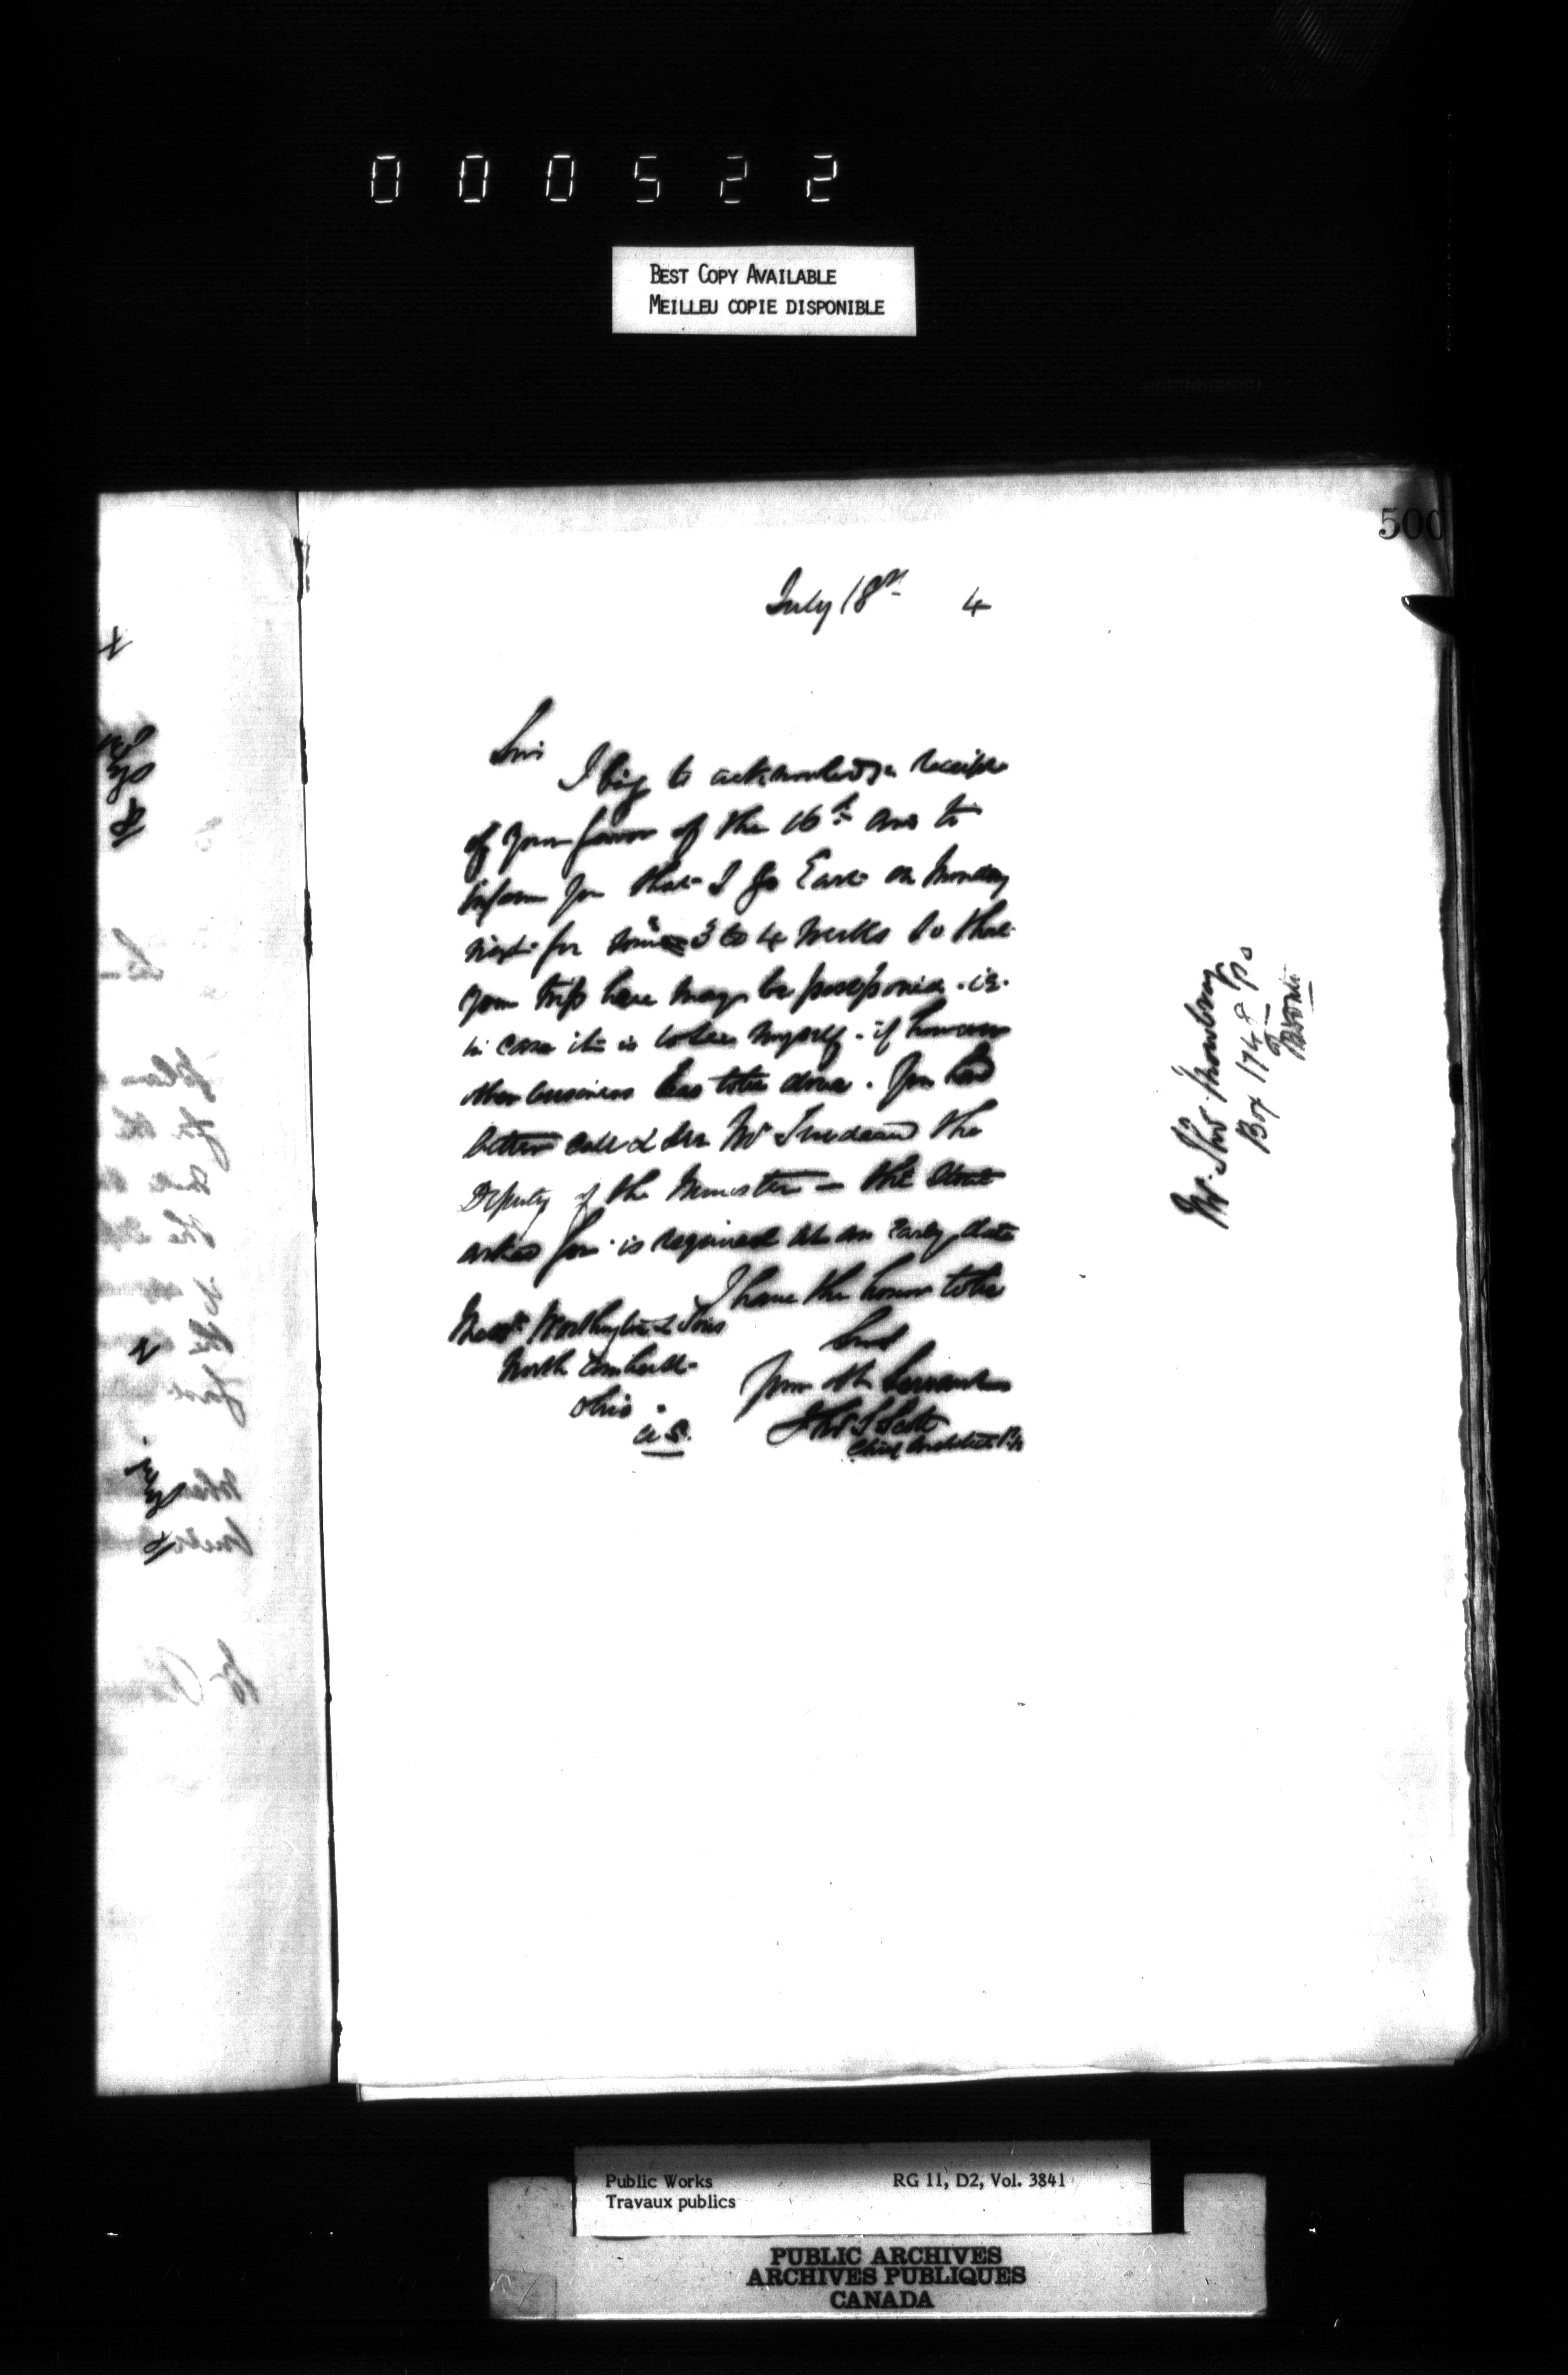 000522
BEST COPY AVAILABLE
MEILLEU COPIE DISPONIBLE
500
July 18th 4
Sirs
I beg to acknowledge receipt
of your favor of the 16th and to
inform you that I go East on Monday
next for some 3 to 4 weeks so that
your trip here may be postponed. ie.
in case it is to see myself. if however
other business has to be done. You had
better call & see Mr Trudeau the
Deputy of the Minister — the stone
asked for is required at an early date
I have the honor to be
Sirs
Your Ob Servant
Jno S Scott
Chief Architect
Messrs Worthington & Sons
North Amherst
Ohio.
U.S.
Mr. Jno.
Box 1748 P.O
Public Works
Travaux publics
RG 11, D2, Vol. 3841
PUBLIC ARCHIVES
ARCHIVES PUBLIQUES
CANADA